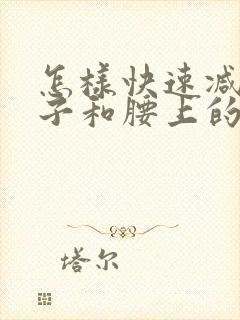 怎樣快速減
子和腰上的
塔尔